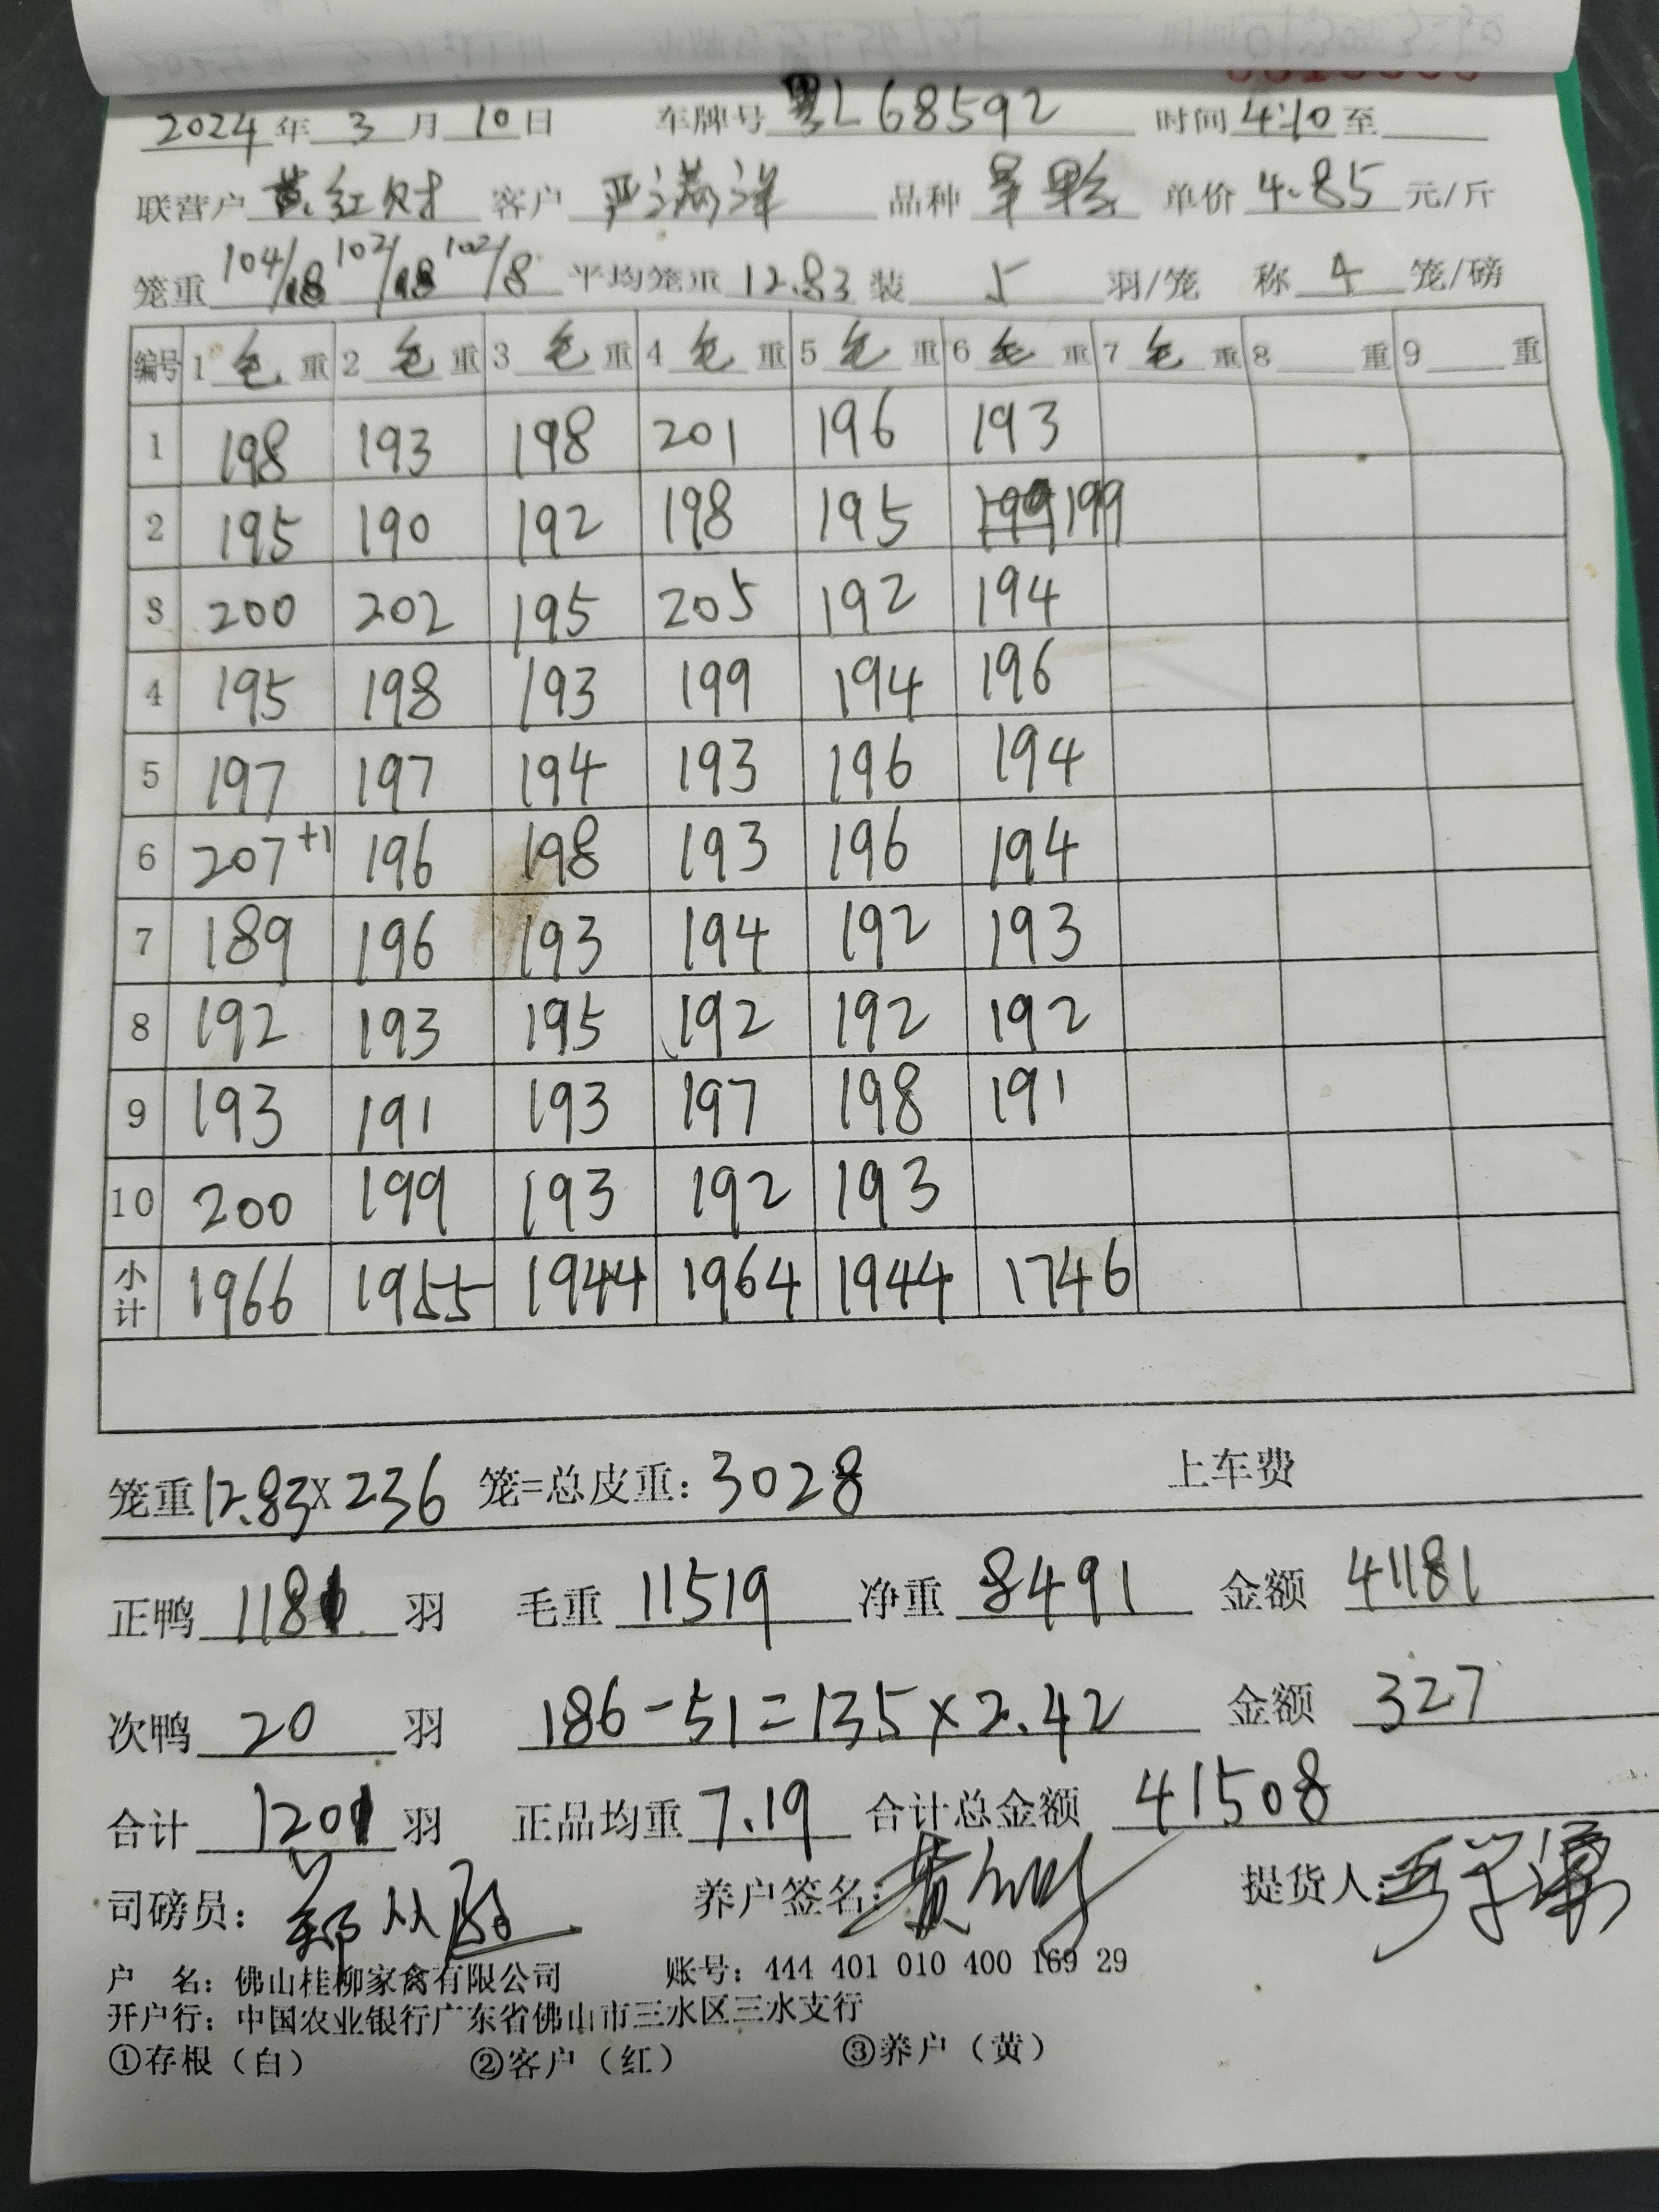 2024年 3月 10日 车牌号 粤L68592 时间 4:10 至
联营户 黄红财 客户 严满洋 品种 单价 4.85 元/斤
笼重 104/8 102/8 102/8 平均笼重 12.83 装 5 羽/笼 称 4 笼/磅
编号 1 毛 重 2 毛 重 3 毛 重 4 毛 重 5 毛 重 6 毛 重 7 毛 重 8 重 9 重
1 198 193 198 201 196 193
2 195 190 192 198 195 199
3 200 202 195 205 192 194
4 195 198 193 199 194 196
5 197 197 194 193 196 194
6 207+1 196 198 193 196 194
7 189 196 193 194 192 193
8 192 193 195 192 192 192
9 193 191 193 197 198 191
10 200 199 193 192 193
小计 1966 1955 1944 1964 1944 1746
笼重 12.83×236 笼=总皮重: 3028 上车费
正鸭 1181 羽 毛重 11519 净重 8491 金额 41181
次鸭 20 羽 186-51=135×2.42 金额 327
合计 1201 羽 正品均重 7.19 合计总金额 41508
司磅员: 养户签名: 提货人:
户 名: 佛山桂柳家禽有限公司 账号: 444 401 010 400 169 29
开户行: 中国农业银行广东省佛山市三水区三水支行
①存根(白) ②客户(红) ③养户(黄)